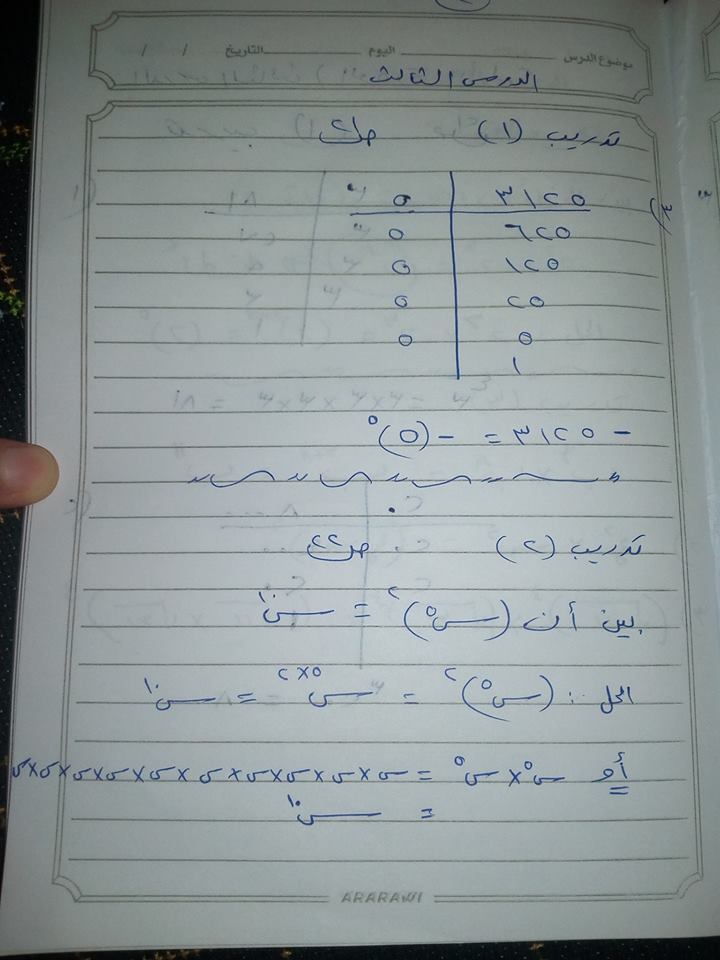 موضوع الدرس اليوم التاريخ / /
الدرس الثالث
تدريب (١) ص٢٠
٣) ٣١٢٥ | ٥
٦٢٥ | ٥
١٢٥ | ٥
٢٥ | ٥
٥ | ٥
١
- ٣١٢٥ = - (٥)^٥
تدريب (٢) ص٢٢
بين أن (س^٥)^٢ = س^١٠
الحل : (س^٥)^٢ = س^٥×٢ = س^١٠
أو س^٥ × س^٥ = س×س×س×س×س×س×س×س×س×س
= س^١٠
ARARAWI